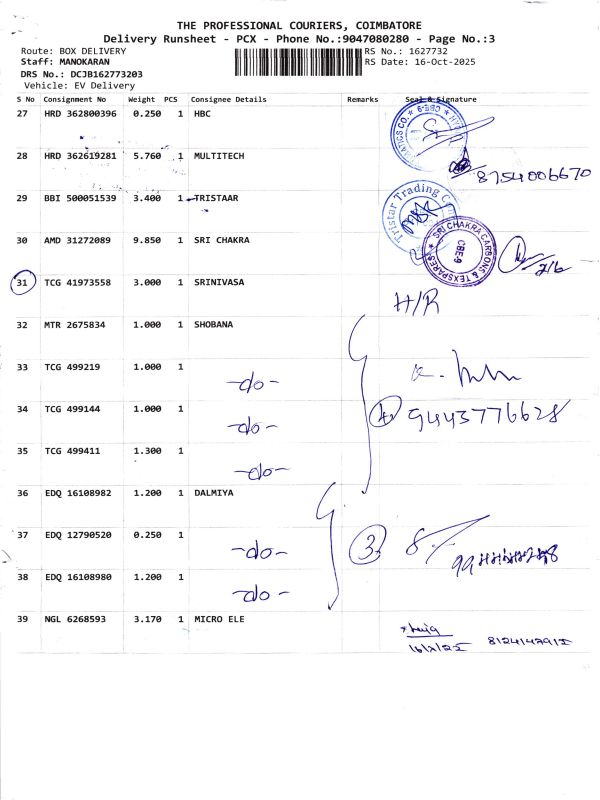 THE PROFESSIONAL COURIERS, COIMBATORE
Delivery Runsheet - PCX - Phone No.:9047080280 - Page No.:3
Route: BOX DELIVERY RS No.: 1627732
Staff: MANOKARAN RS Date: 16-Oct-2025
DRS No.: DCJB162773203
Vehicle: EV Delivery
S No Consignment No Weight PCS Consignee Details Remarks Seal & Signature
27 HRD 362800396 0.250 1 HBC
28 HRD 362619281 5.760 1 MULTITECH
8754006670
29 BBI 500051539 3.400 1 TRISTAAR
Tristar Trading
30 AMD 31272089 9.850 1 SRI CHAKRA
SRI CHAKRA CARBONS & TEXSPARES CBE-9
31 TCG 41973558 3.000 1 SRINIVASA
H/R
32 MTR 2675834 1.000 1 SHOBANA
33 TCG 499219 1.000 1 -do-
34 TCG 499144 1.000 1 -do- 4 9443776628
35 TCG 499411 1.300 1 -do-
36 EDQ 16108982 1.200 1 DALMIYA
37 EDQ 12790520 0.250 1 -do- 3
38 EDQ 16108980 1.200 1 -do-
39 NGL 6268593 3.170 1 MICRO ELE